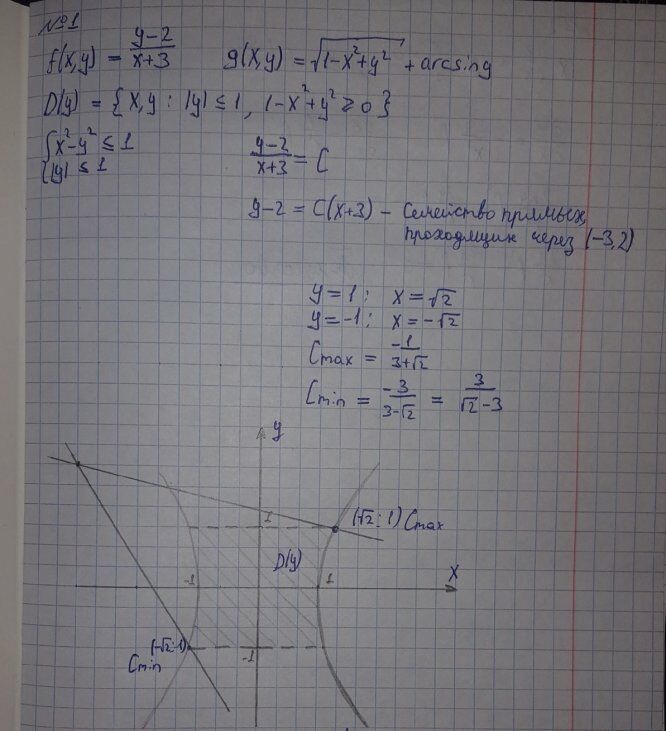 №1
f(x,y) = \frac{y-2}{x+3} g(x,y) = \sqrt{1-x^2+y^2} + arcsin y
D(g) = {x,y : |y| ≤ 1, 1-x^2+y^2 ≥ 0}
{x^2-y^2 ≤ 1
{|y| ≤ 1
\frac{y-2}{x+3} = C
y-2 = C(x+3) - Семейство прямых,
проходящих через (-3,2)
y=1: x=√2
y=-1: x=-√2
Cmax = \frac{-1}{3+√2}
Cmin = \frac{-3}{3-√2} = \frac{3}{√2-3}
y
1
(√2;1) Cmax
D(g)
-1
1
x
(-√2;-1)
Cmin
-1